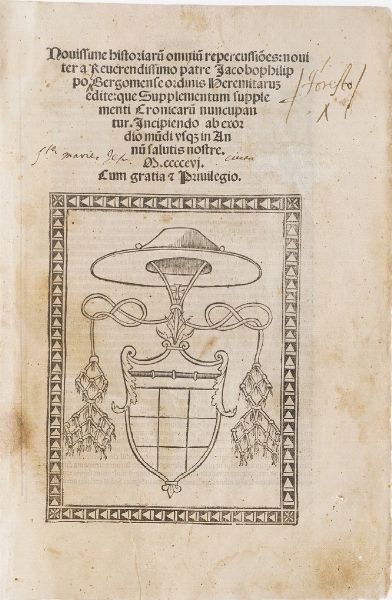 Nouissime historiarũ omniũ repercussiões: noui
ter a Reuerendissimo patre Jacobophilip
po Bergomense ordinis Heremitarum
edite: que Supplementum supple
menti Cronicarũ nuncupan
tur. Incipiendo ab exor
dio mũdi vsqz in An
nũ salutis nostre.
M.cccccvj.
Cum gratia ⁊ Priuilegio.
Foresto